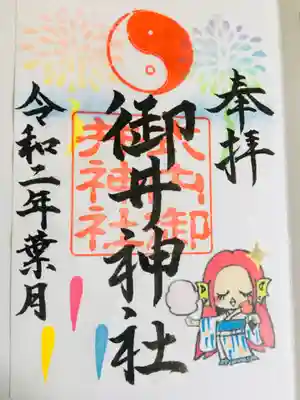 奉拝
御井神社
令和二年葉月
御
井神社